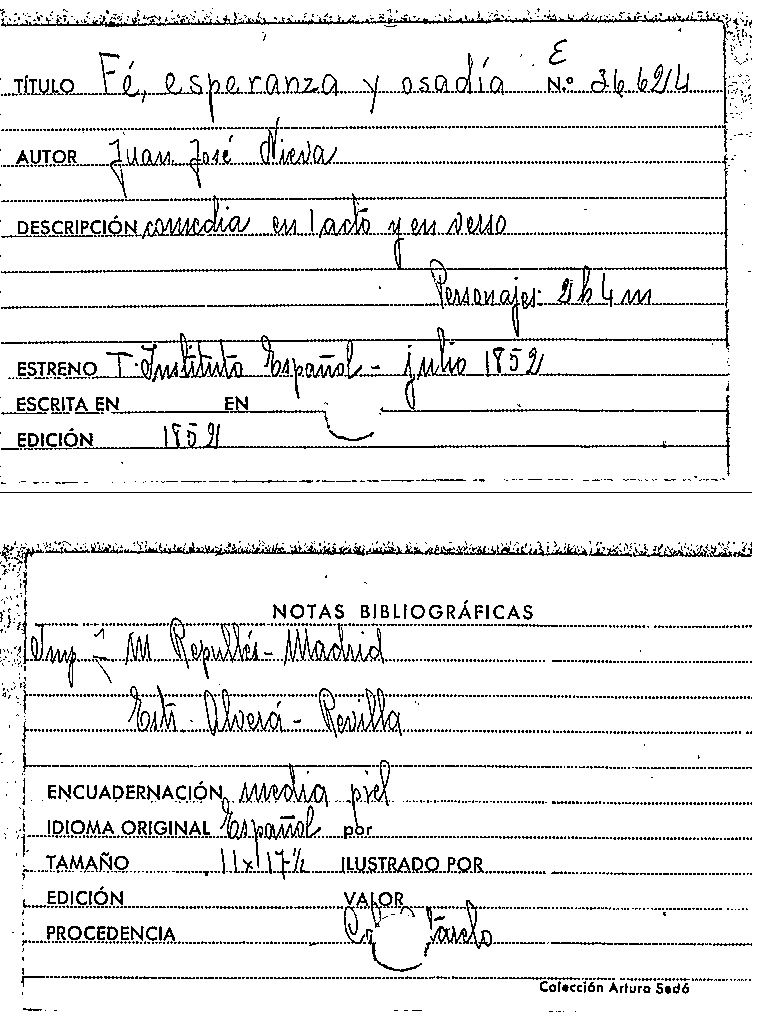 TÍTULO Fé, esperanza y osadía E N.º 36.624
AUTOR Juan José Nieva
DESCRIPCIÓN comedia en 1 acto y en verso
Personajes: 2 h 4 m
ESTRENO T. Instituto Español - julio 1852
ESCRITA EN EN
EDICIÓN 1852
NOTAS BIBLIOGRÁFICAS
Imp - M Repullés - Madrid
Estr. Alverá - Revilla
ENCUADERNACIÓN media piel
IDIOMA ORIGINAL Español por
TAMAÑO 11 x 17½ ILUSTRADO POR
EDICIÓN VALOR
PROCEDENCIA
Colección Arturo Sedó